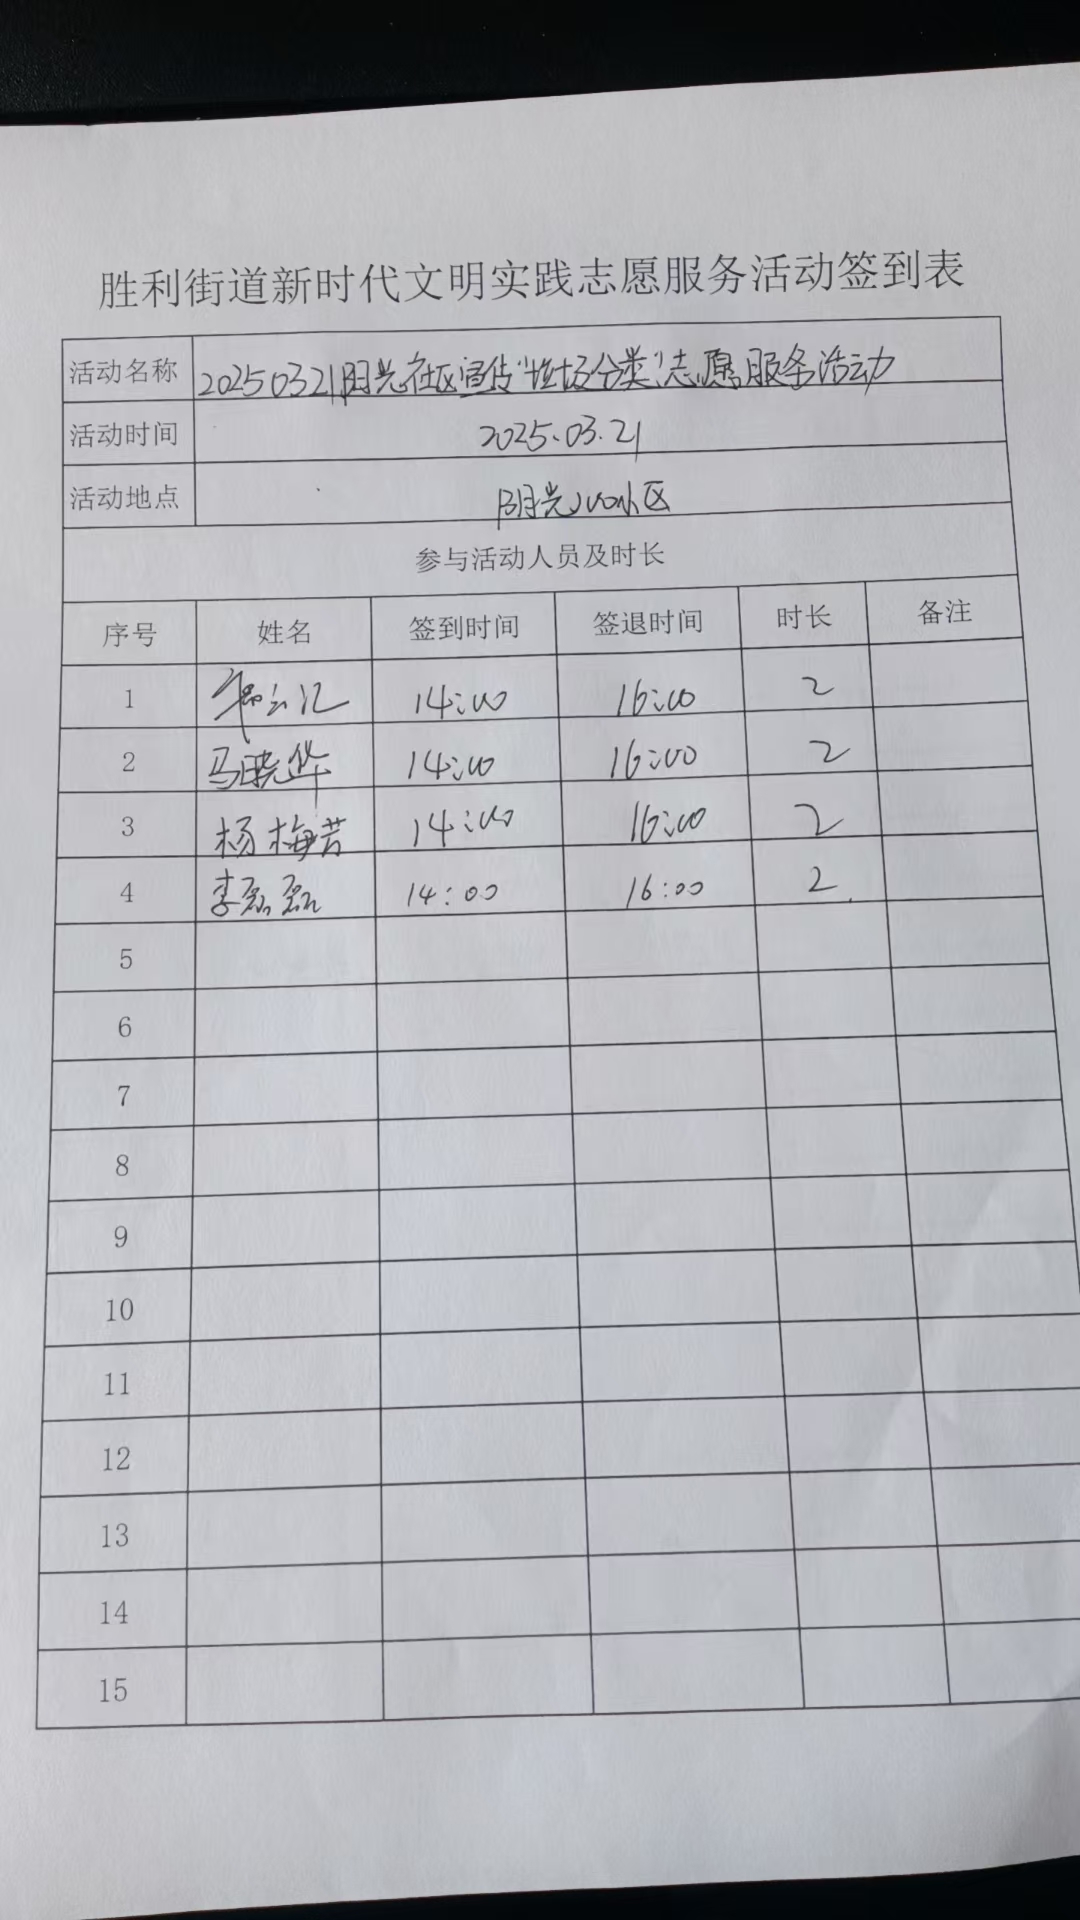 胜利街道新时代文明实践志愿服务活动签到表
活动名称 20250321阳光社区宣传"垃圾分类"志愿服务活动
活动时间 2025.03.21
活动地点 阳光100小区
参与活动人员及时长
序号 姓名 签到时间 签退时间 时长 备注
1 14:00 16:00 2
2 马晓华 14:00 16:00 2
3 杨梅芳 14:00 16:00 2
4 李磊磊 14:00 16:00 2
5
6
7
8
9
10
11
12
13
14
15